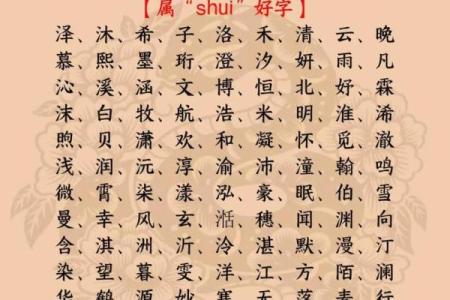 【属“shui”好字】
泽、沐、希、子、洛、禾、清、云、晚
慕、熙、墨、珩、澄、汐、妍、雨、凡
沁、溪、涵、文、博、恒、北、好、霖
沫、白、牧、航、浩、米、明、淮、浠
煦、贝、潇、欢、和、凝、怀、觅、澈
浅、润、沅、淳、渝、沛、潼、翰、鸣
微、霄、柒、漾、泓、豪、眠、伯、雪
曼、幸、风、玄、湉、穗、闻、渊、向
含、淇、洲、沂、泠、湛、默、漫、汀
染、望、暮、雯、洋、江、方、陌、澜
华、鹤、源、妙、寒、无、落、行